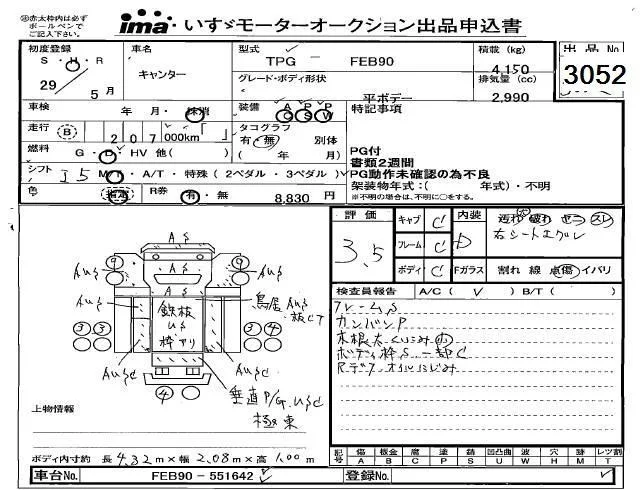 ㊟赤太枠内は必ず
ボールペンで
ご記入下さい。
ima いすゞモーターオークション出品申込書
初度登録
S・H・R
29 5月
車名
キャンター
型式
TPG － FEB90
グレード・ボディ形状
平ボデー
積載 (kg)
4,150
排気量 (cc)
2,990
出品No
3052
車検 年 月・抹消
装備 A P P
C S W
特記事項
走行 B 207,000km「 」
タコグラフ
有・無 別体
( 年 月)
燃料 G・D・HV 他( )
PG付
書類2週間
シフト I5 MT・A/T・特殊 (2ペダル・3ペダル)
PG動作未確認の為不良
架装物年式:( 年式)・不明
※不明の場合は、不明に○をする。
色 R券 有・無 8,830円
評価
3.5
キャブ C
フレーム C
ボディ C
内装 D
Fガラス 割れ 線 点傷 イバリ
右シート
検査員報告 A/C( ✓ ) B/T( )
フレームS
カンバンP
ボディ枠S 一部C
A S
A S
A S
⑨ ⑨
AUS AUS
鳥居 AUS
鉄板
US
枠アリ
③③ ③④
AUSC AUSC
④
垂直P/G.USC
極東
上物情報
ボディ内寸約 長 4.32m × 幅 2.08m × 高 1.00m
記号 傷 板金 腐 塗 錆 凹凸曲 波 穴 外 レツ割
A B C P S U W H M T
車台No. FEB90 － 551642
登録No.